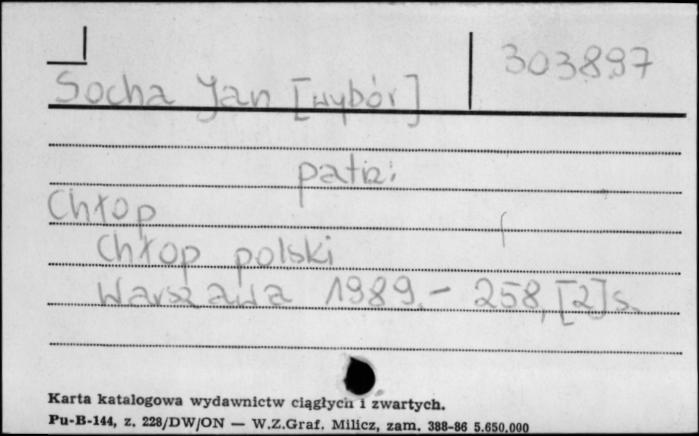 303897
Socha Jan [wybór]
patrz:
Chłop
Chłop polski
Warszawa 1989. - 258, [2] s.
Karta katalogowa wydawnictw ciągłych i zwartych.
Pu-B-144, z. 228/DW/ON — W.Z.Graf. Milicz, zam. 388-86 5.650.000